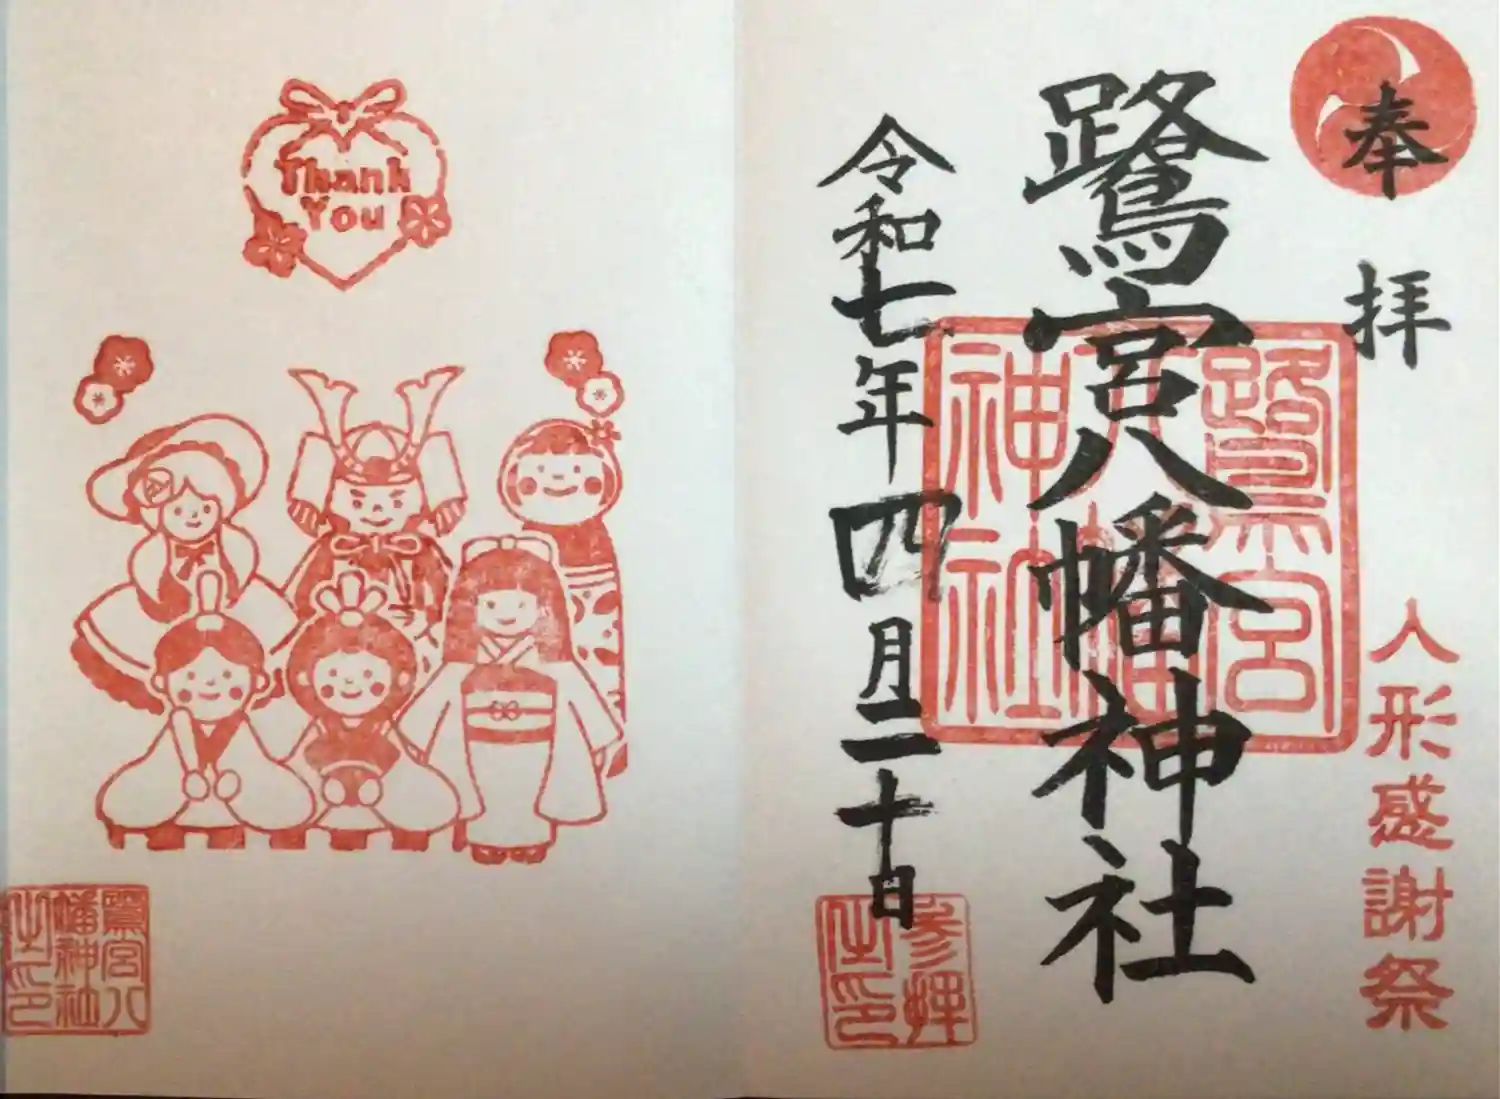 奉拝
人形感謝祭
鷺宮八幡神社
鷺宮八幡神社
令和七年四月二十日
参拝之印
Thank
You
鷺宮八幡神社之印